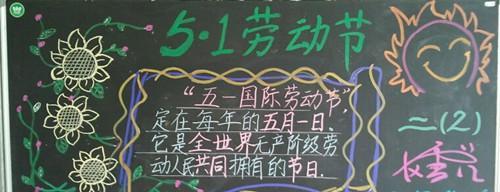 5·1劳动节
“五一国际劳动节”,
定在每年的五月一日。
它是全世界无产阶级劳
动人民共同拥有的节日。
二(2)